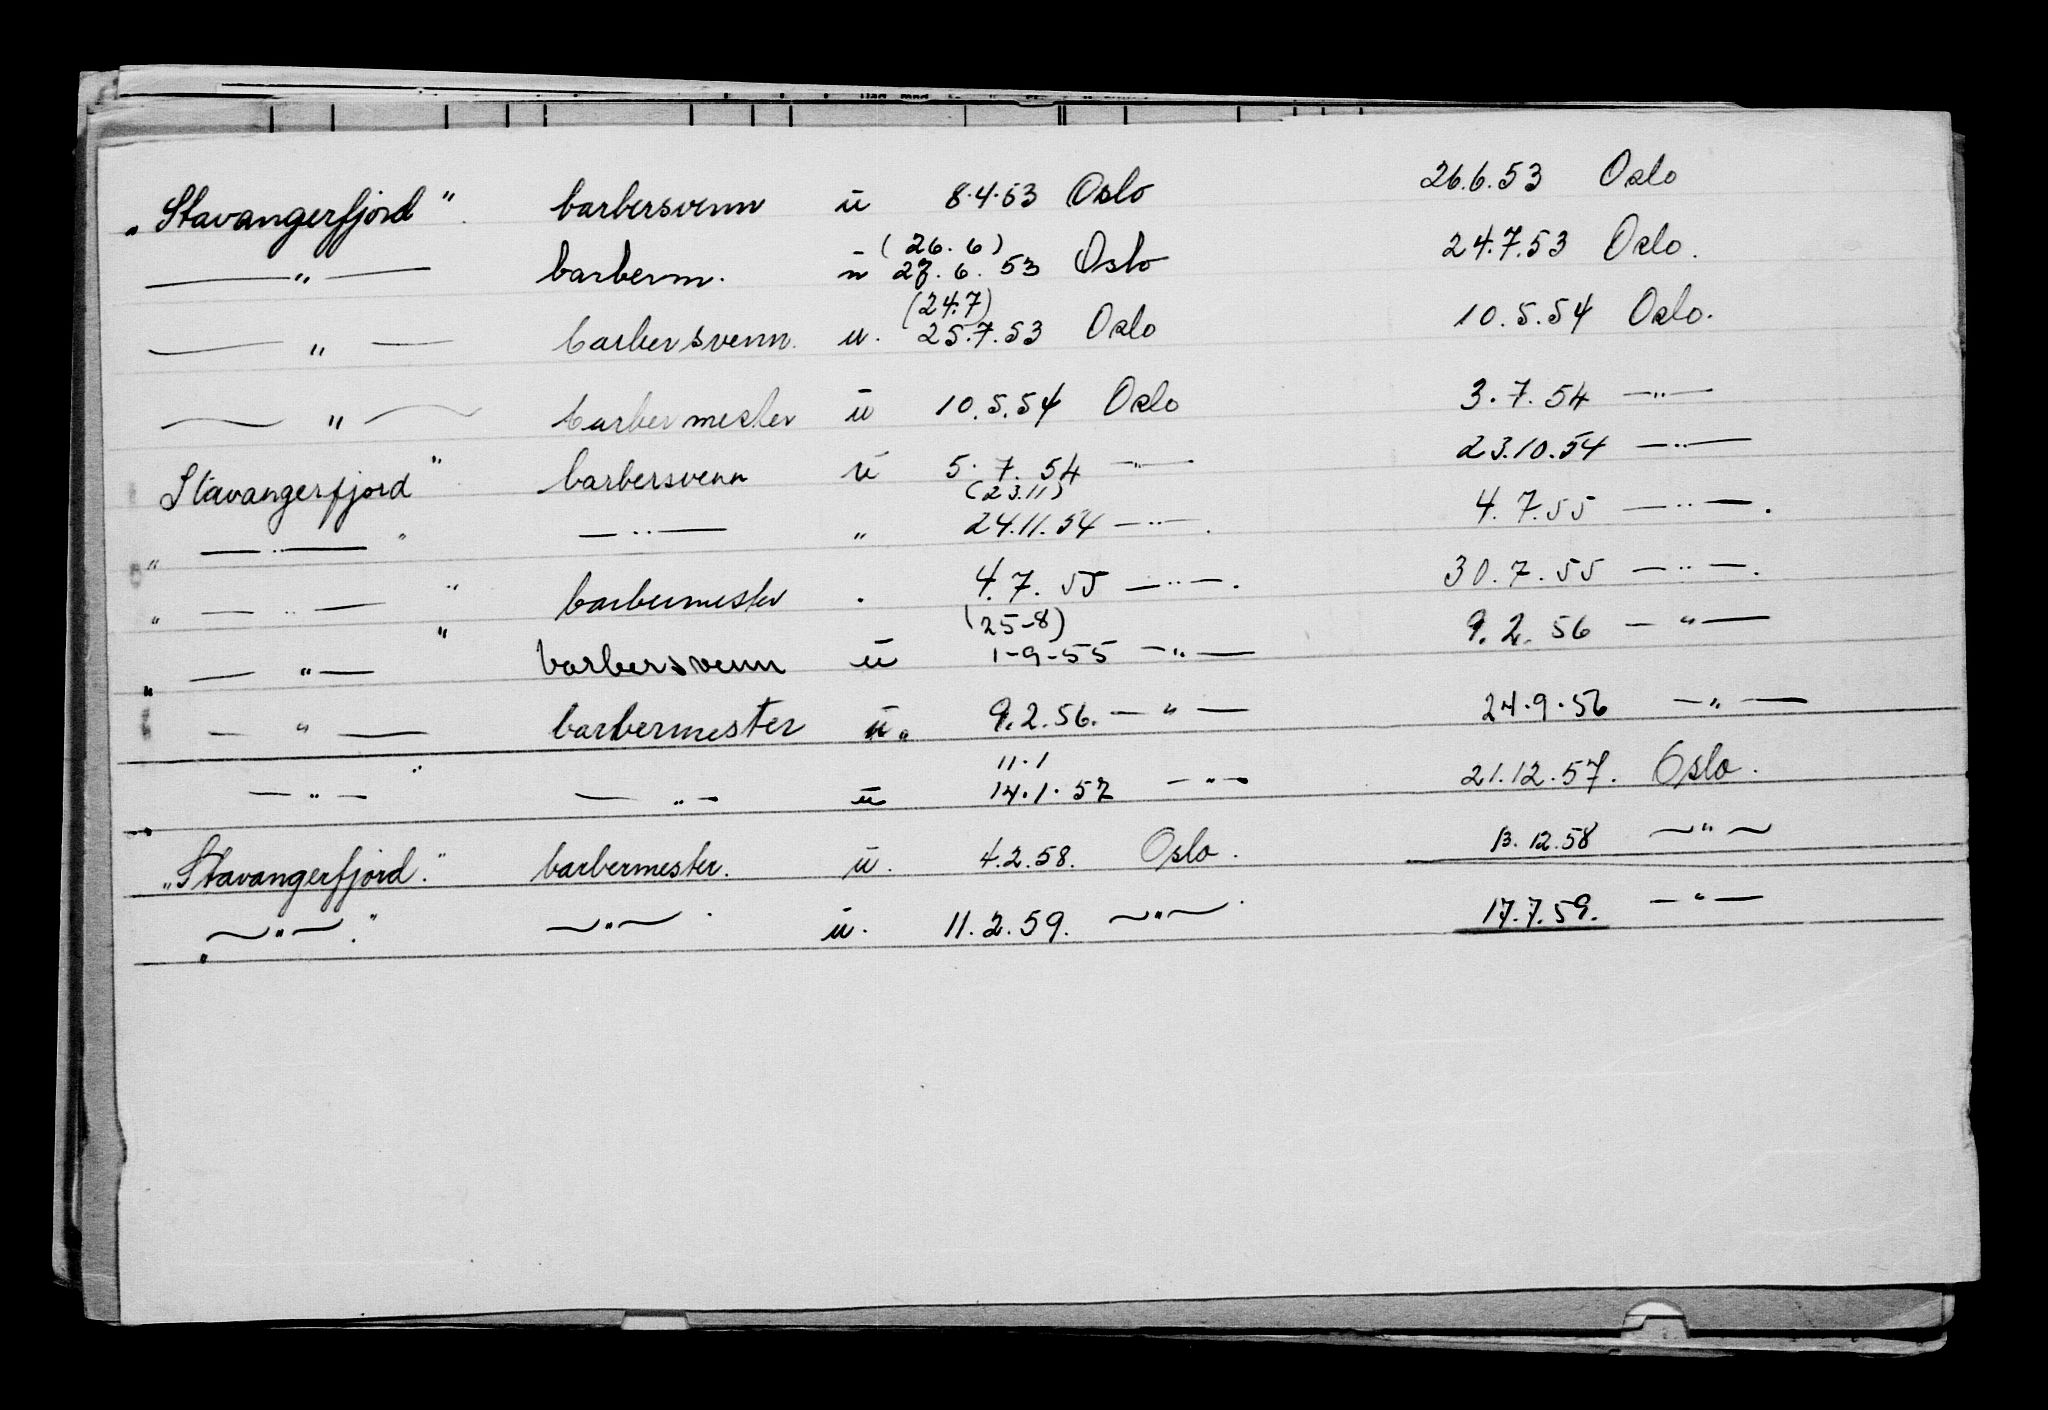 „Stavangerfjord" barbersvenn u 8.4.53 Oslo 26.6.53 Oslo
—"— barberm. u (26.6) 27.6.53 Oslo 24.7.53 Oslo.
—"— barbersvenn. u. (24.7) 25.7.53 Oslo 10.5.54 Oslo.
—"— barbermester u 10.5.54 Oslo 3.7.54 —"—
Stavangerfjord" barbersvenn u 5.7.54 —"— 23.10.54 —"—
„—"—" —"— " (23.11) 24.11.54 —"—. 4.7.55 —"—.
„—"—" barbermester . 4.7.55 —"—. 30.7.55 —"—.
„—"—" barbersvenn u (25-8) 1-9-55 —"— 9.2.56 —"—
—"— barbermester u. 9.2.56. —"— 24.9.56 —"—
„—"—" —"— u 11.1 14.1.57 —"— 21.12.57. Oslo.
„Stavangerfjord." barbermester. u. 4.2.58. Oslo. 13.12.58 —"—
„—"—." —"—. u. 11.2.59. —"—. 17.7.59. —"—